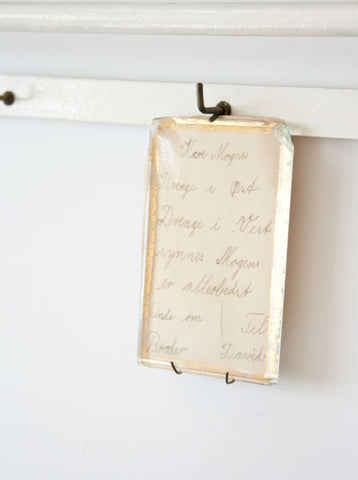 Kære Mogens
Drenge i Øst
Drenge i Vest
synnes Mogens
er allerbedst
inde om Til
Broder David